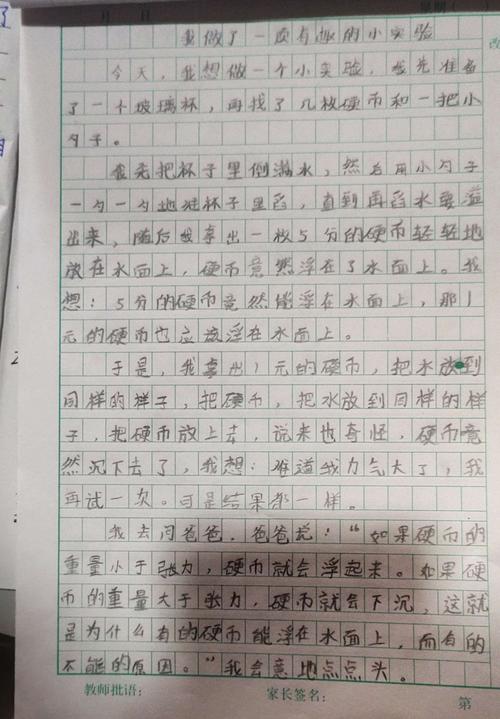 月 日 星期（
改
我做了一项有趣的小实验
今天，我想做一个小实验，我先准备
了一个玻璃杯，再找了几枚硬币和一把小
勺子。
我先把杯子里倒满水，然后用小勺子
一勺一勺地往杯子里舀，直到再舀水要溢
出来，随后我拿出一枚5分的硬币轻轻地
放在水面上，硬币竟然浮在了水面上。我
想：5分的硬币竟然能浮在水面上，那1
元的硬币也应该浮在水面上。
于是，我拿出1元的硬币，把水放到
同样的样子，把硬币，把水放到同样的样
子，把硬币放上去，说来也奇怪，硬币竟
然沉下去了，我想：难道我力气大了，我
再试一次。可是结果都一样。
我去问爸爸，爸爸说：“如果硬币的
重量小于张力，硬币就会浮起来。如果硬
币的重量大于张力，硬币就会下沉，这就
是为什么有的硬币能浮在水面上，而有的
不能的原因。”我会意地点点头。
教师批语： 家长签名： 第